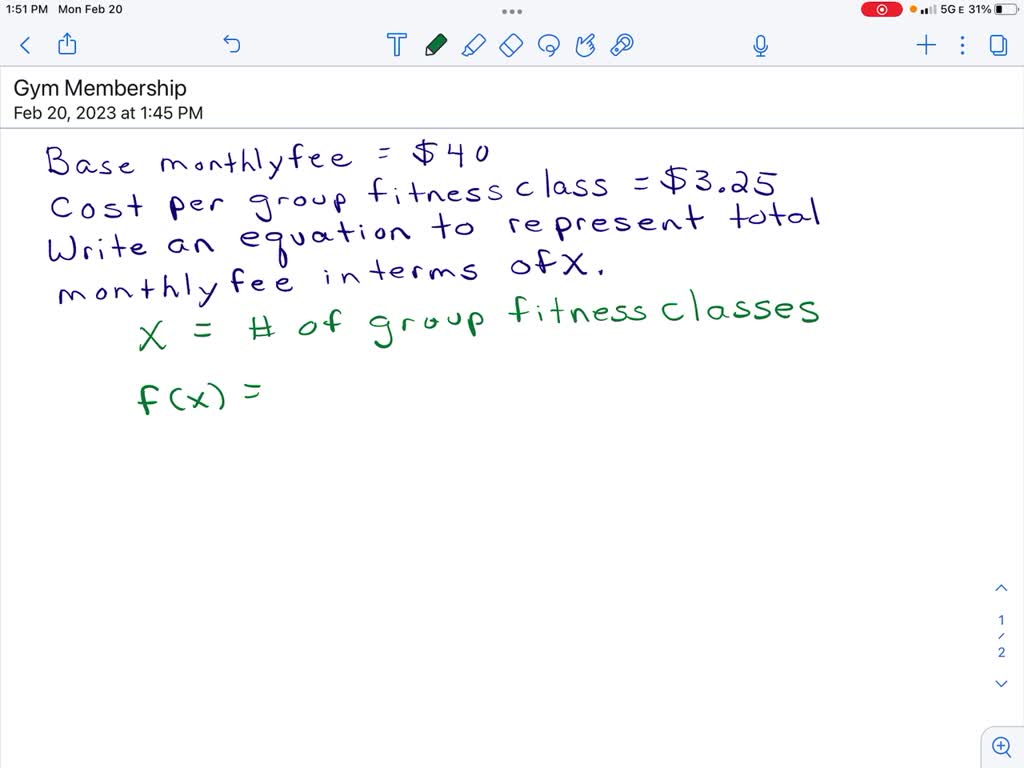 1:51 PM Mon Feb 20
5G E 31%
T
Gym Membership
Feb 20, 2023 at 1:45 PM
Base monthly fee = $40
Cost per group fitness class = $3.25
Write an equation to represent total
monthly fee in terms of x.
x = # of group fitness classes
f(x) =
1
/
2